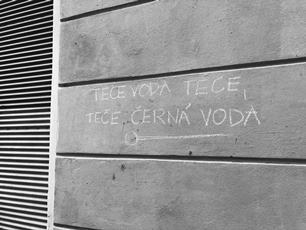 TEČE VODA TEČE,
TEČE, ČERNÁ VODA